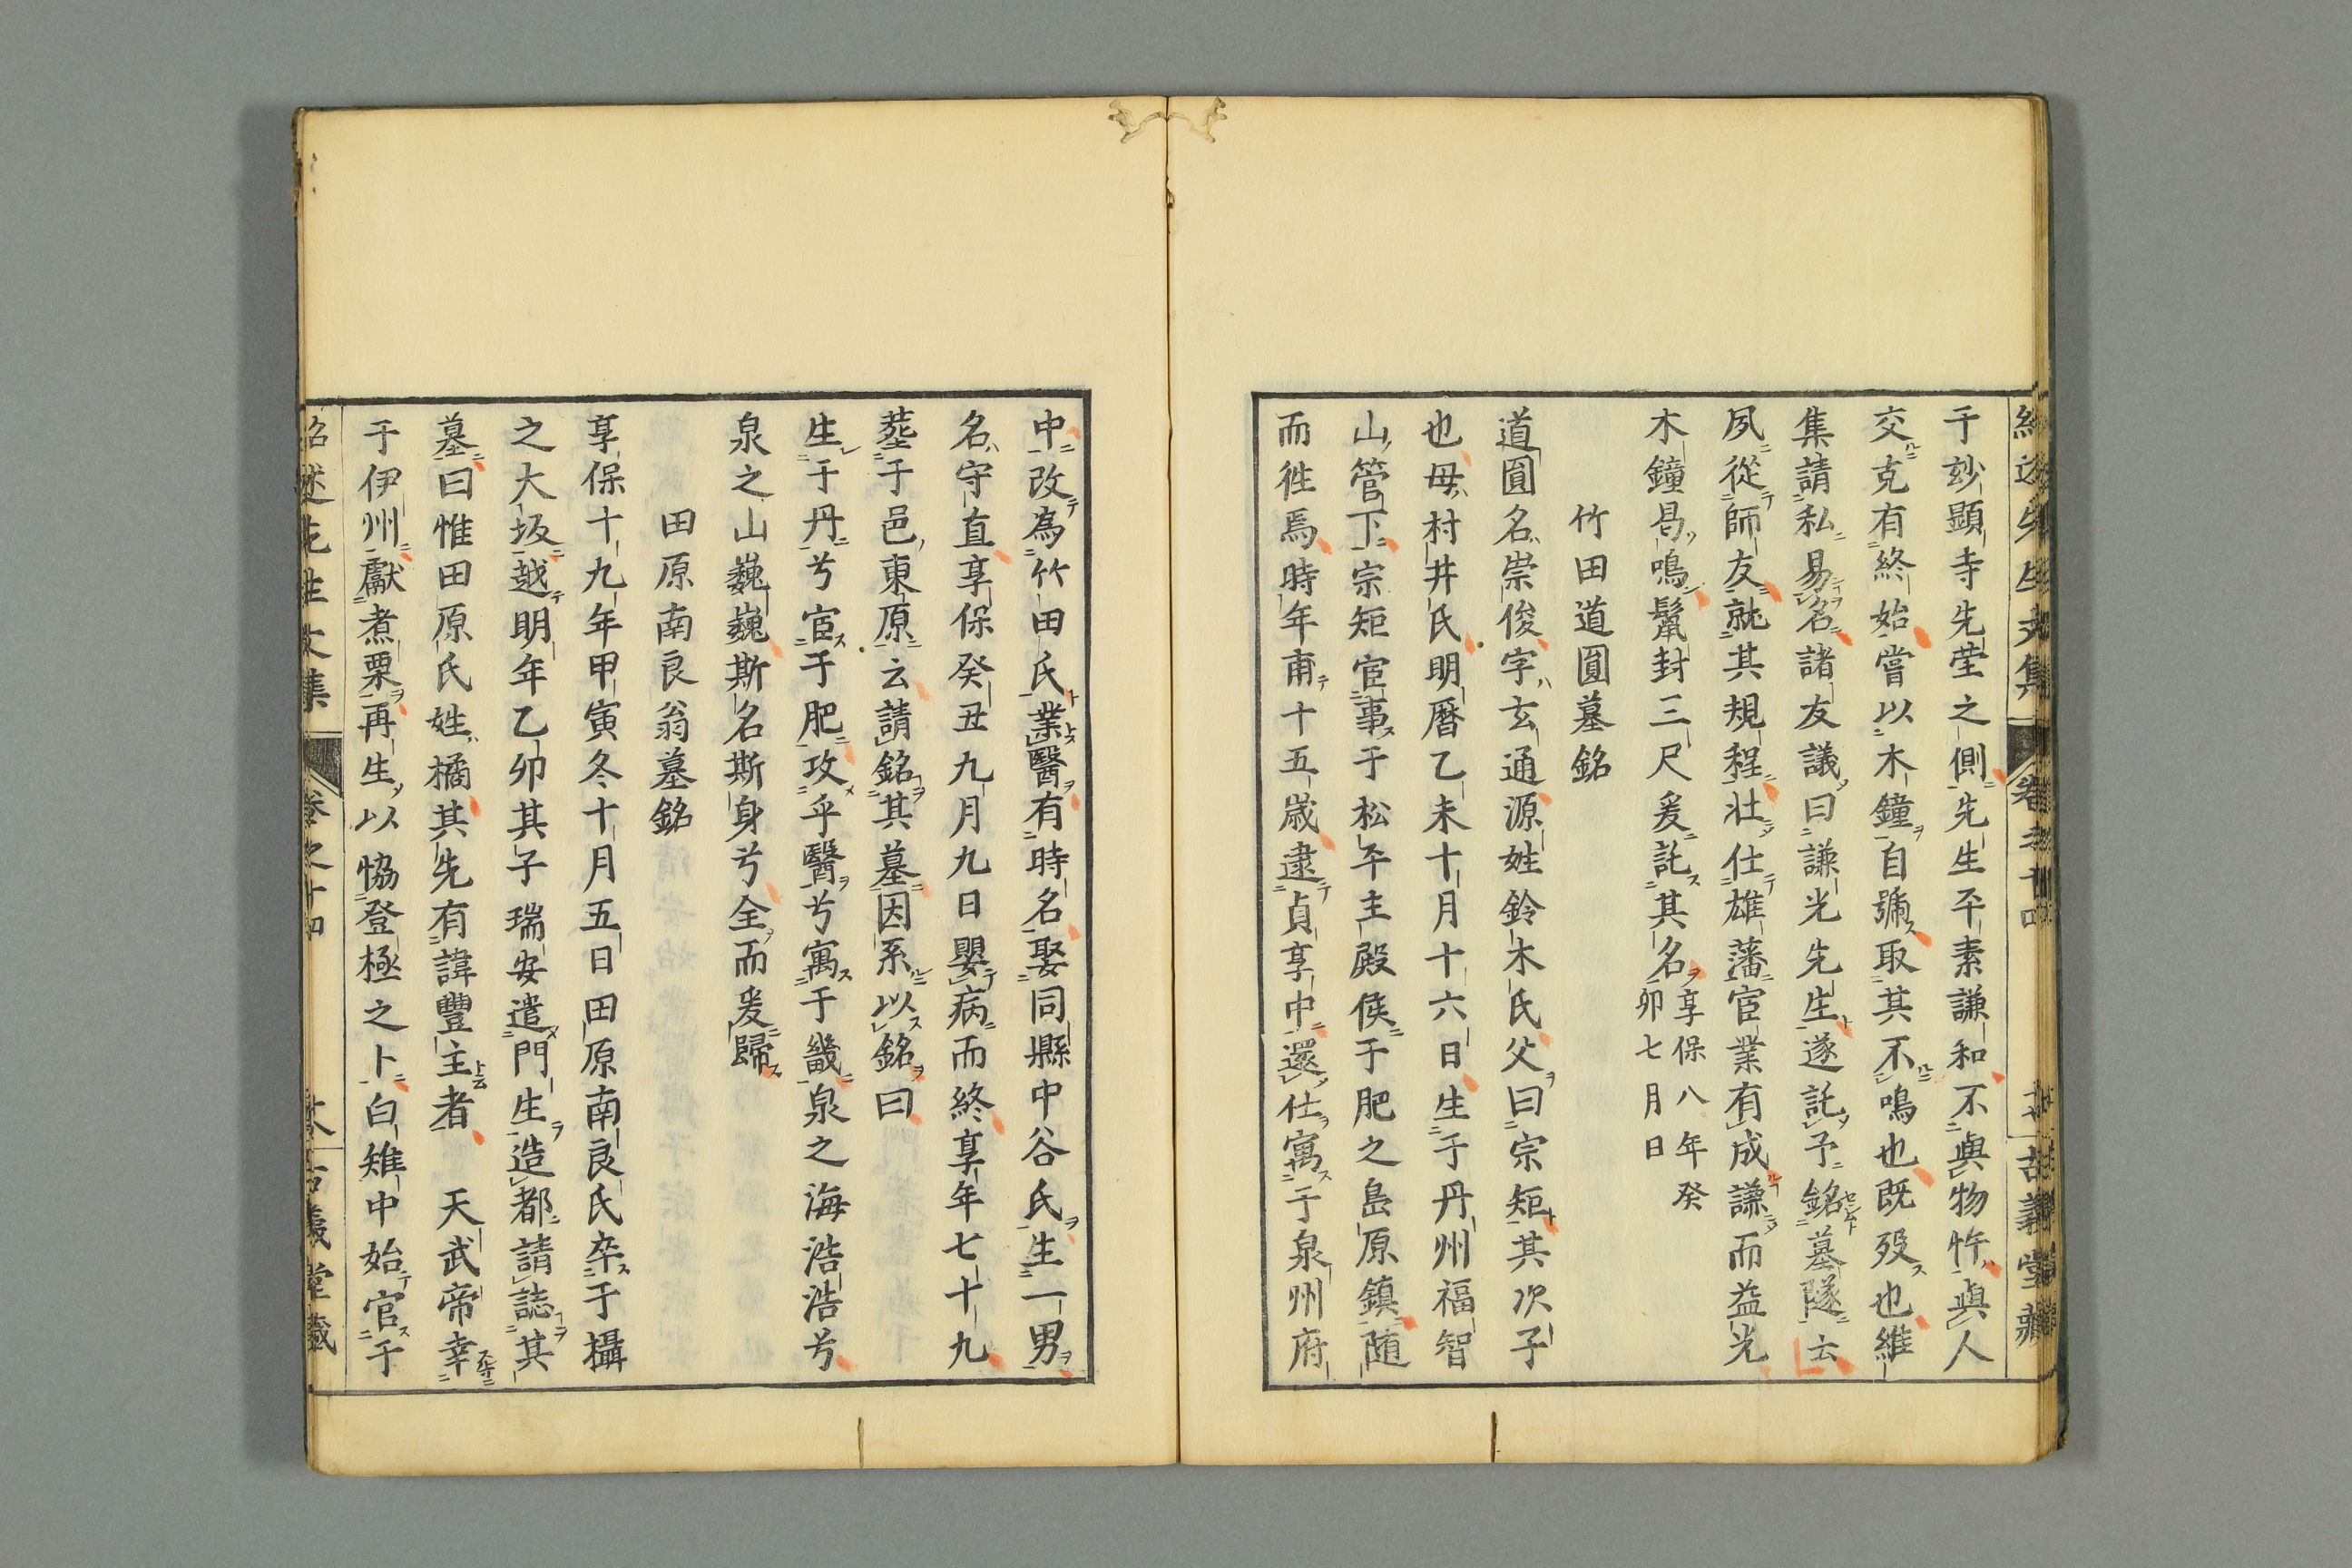 于玅顯寺先塋之側先生平素謙和不與物忤與人
交克有終始嘗以木鐘自號取其不鳴也既歿也維
集請私易名諸友議曰謙光先生遂託予銘墓隧云
夙從師友就其規程壯仕雄藩宦業有成謙而益光
木鐘曷鳴鬣封三尺爰託其名享保八年癸
卯七月日
竹田道圓墓銘
道圓名崇俊字玄通源姓鈴木氏父曰宗矩其次子
也母村井氏明曆乙未十月十六日生于丹州福智
山管下宗矩宦事于松平主殿侯于肥之島原鎮随
而徃焉時年甫十五歳逮貞享中還仕寓于泉州府
中改為竹田氏業醫有時名娶同縣中谷氏生一男
名守直享保癸丑九月九日嬰病而終享年七十九
塟于邑東原云請銘其墓因系以銘曰
生于丹兮宦于肥攻乎醫兮寓于畿泉之海浩浩兮
泉之山巍巍斯名斯身兮全而爰歸
田原南良翁墓銘
享保十九年甲寅冬十月五日田原南良氏卒于攝
之大坂越明年乙卯其子瑞安遣門生造都請誌其
墓曰惟田原氏姓橘其先有諱豐主者 天武帝幸
于伊州獻煮栗再生以恊登極之卜白雉中始官于
紹述先生文集 卷之十四 古義堂藏